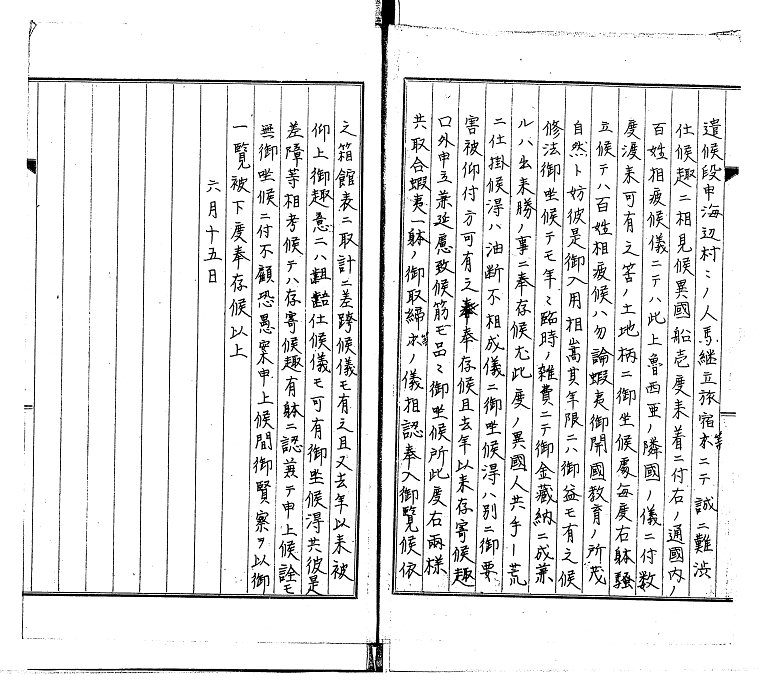 遣候段申海辺村〻ノ人馬継立旅宿等ニテ誠ニ難渋
仕候趣ニ相見候異國船壱度来着ニ付右ノ通國内ノ
百姓相疲候儀ニテハ此上魯西亜ノ隣國ノ儀ニ付数
度渡来可有之筈ノ土地柄ニ御坐候處毎度右躰騒
立候テハ百姓相疲候ハ勿論蝦夷御開國教育ノ所茂
自然ト妨彼是御入用相嵩其年限ニハ御益モ有之候
修法御坐候テモ年〻臨時ノ雑費ニテ御金蔵納ニ成兼
ルハ出来勝ノ事ニ奉存候尤此度ノ異國人共手荒
ニ仕掛候得ハ油断不相成儀ニ御坐候得ハ別ニ御要
害被仰付方可有之奉存候且去年以来存寄候趣
口外申立兼延慮致候筋モ品〻御坐候所此度右兩様
共取合蝦夷一躰ノ御取締等ノ儀相認奉入御覧候依
之箱館表ニ取計ニ差跨候儀モ有之且又去年以来被
仰上御趣意ニハ齟齬仕候儀モ可有御坐候得共彼是
差障等相考候テハ存寄候趣有躰ニ認兼テ申上候詮モ
無御坐候ニ付不顧恐愚案申上候間御賢察ヲ以御
一覧被下度奉存候以上
六月十五日